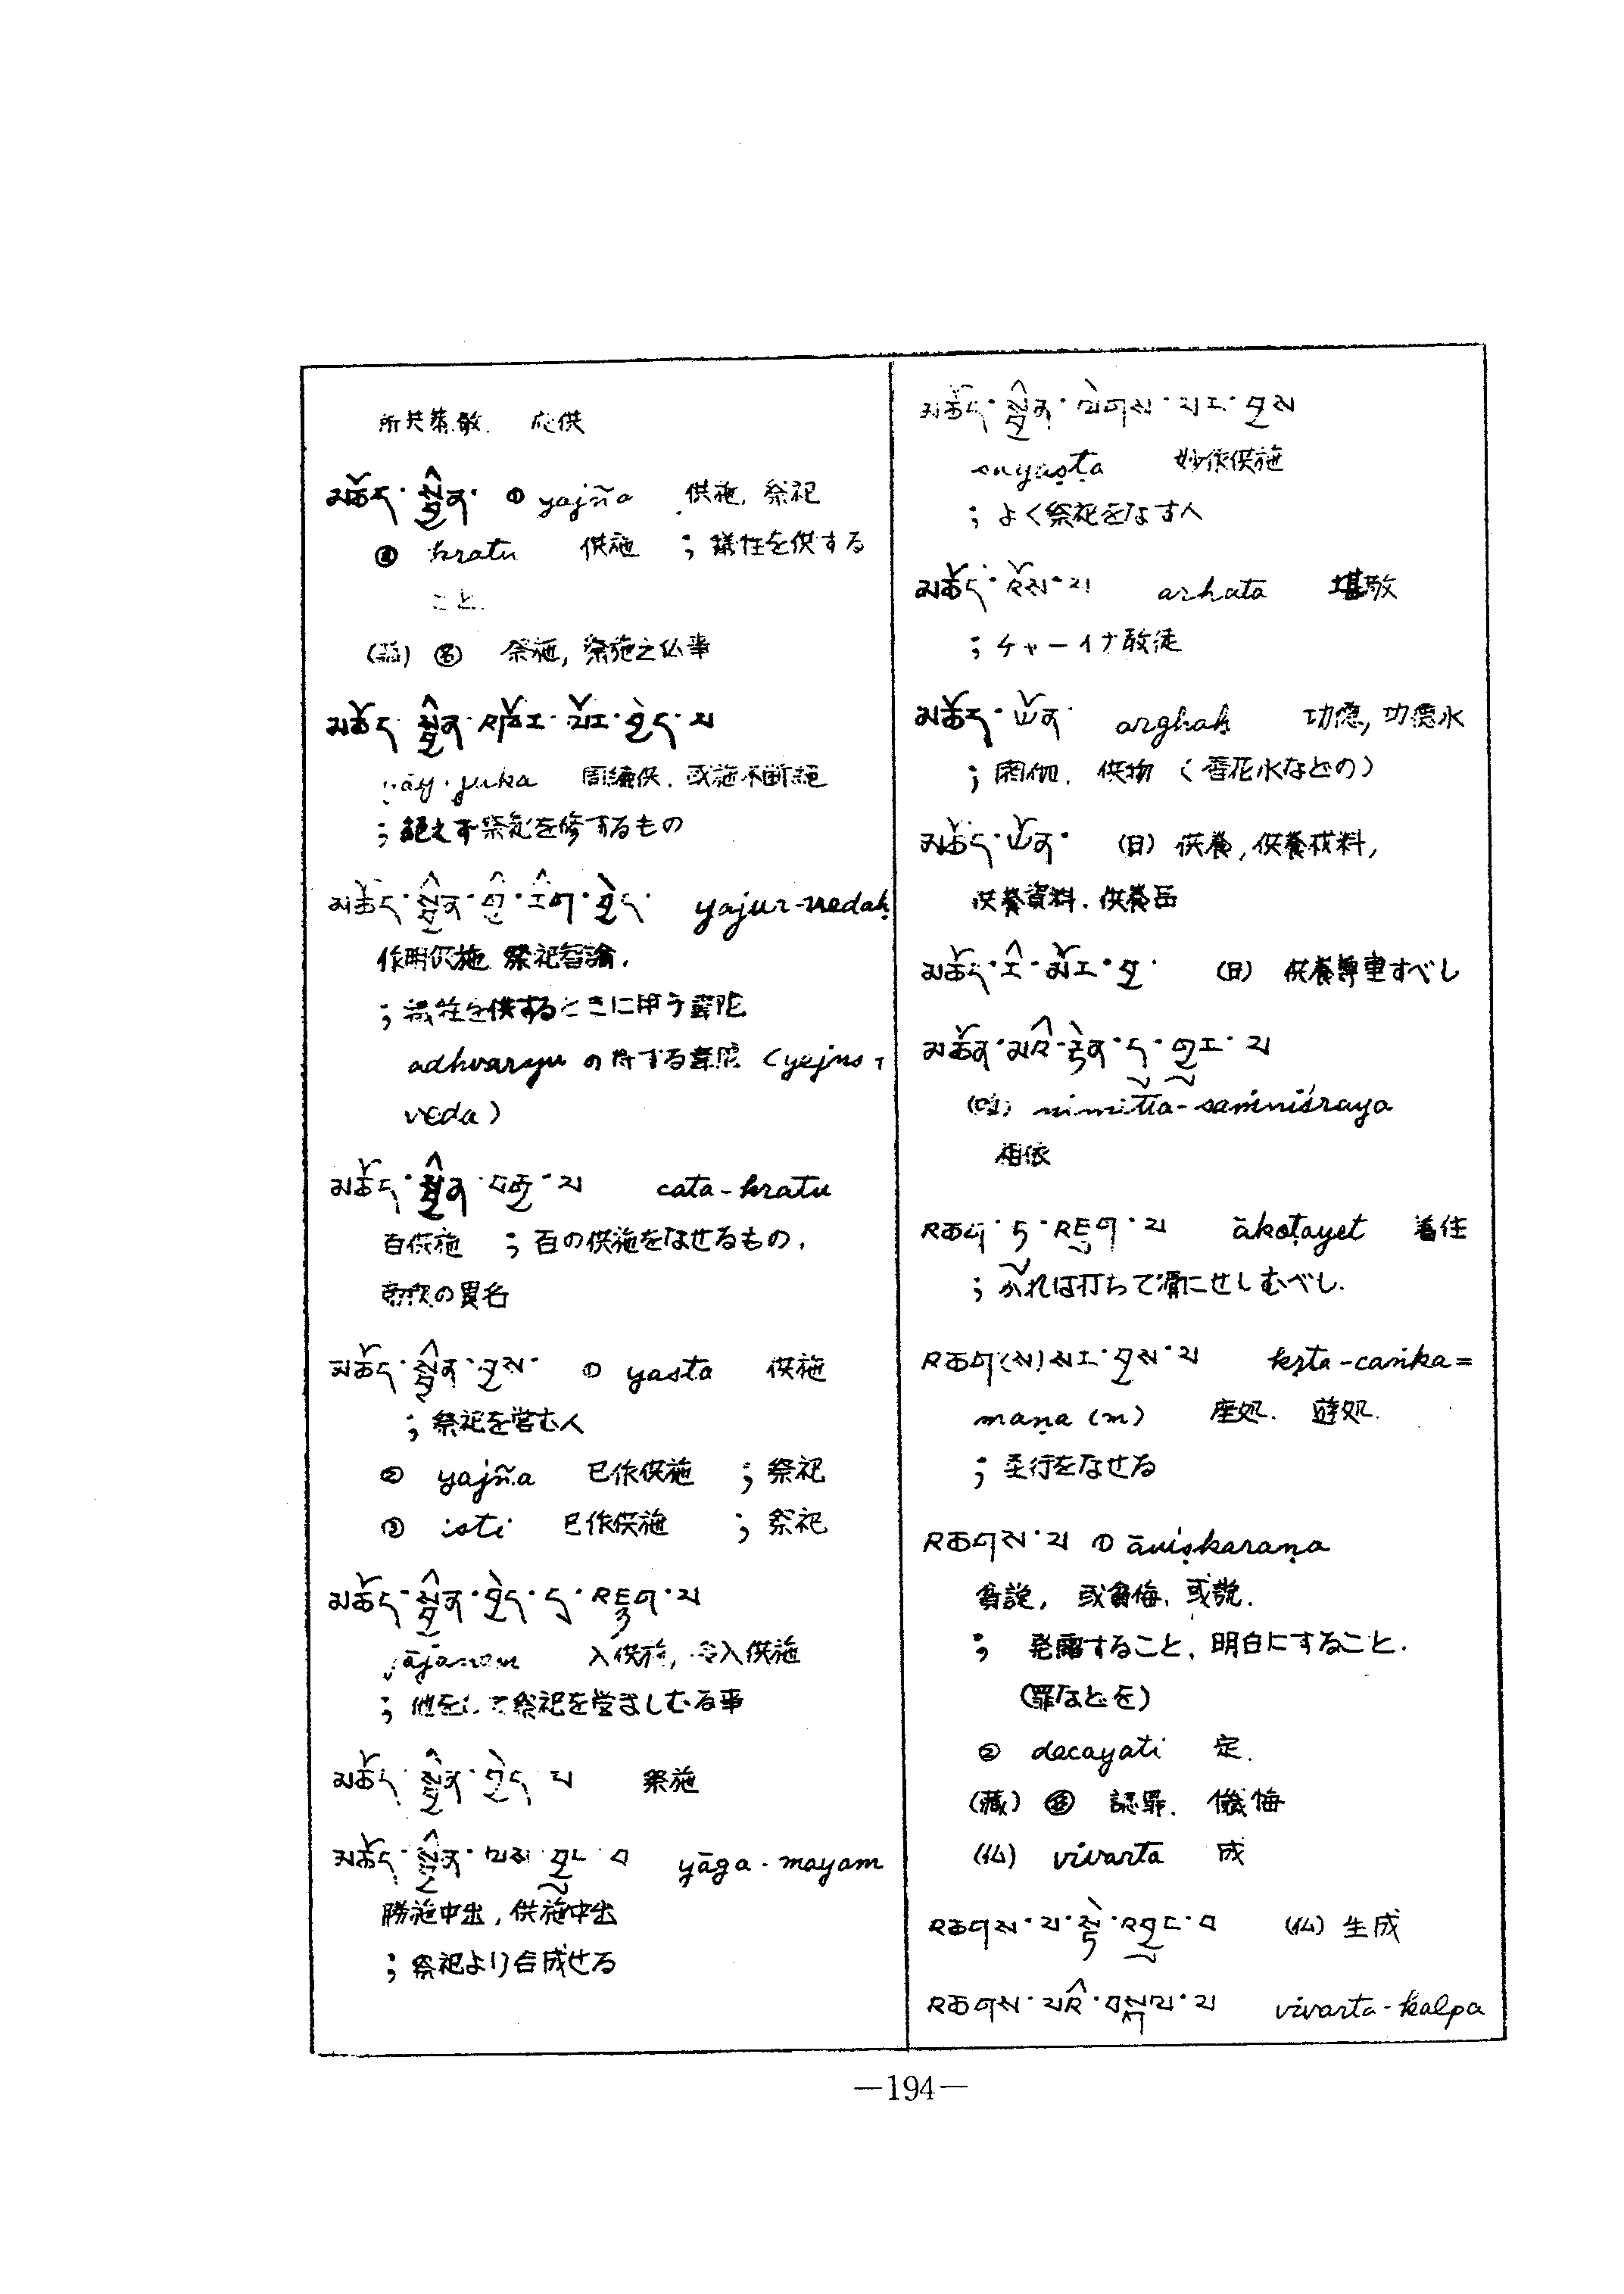 所共恭敬. 応供
མཆོད་སྦྱིན་ ① yajña 供施, 祭祀
② kratu 供施 ; 犠牲を供する
こと.
(蔵) 名 祭施, 祭施之仏事
མཆོད་སྦྱིན་འཁོར་ལོར་བྱེད་པ
yāy-juka 周編供. 或施不断絶
; 絶えず祭祀を修するもの
མཆོད་སྦྱིན་གྱི་རིག་བྱེད་ yajur-vedaḥ
作明供施 祭祀智論.
; 犠牲を供するときに用う韋陀
adhvaryu の帰する韋陀 (yajus -
veda)
མཆོད་སྦྱིན་བརྒྱ་པ cata-kratu
百供施 ; 百の供施をなせるもの.
帝釈の異名
མཆོད་སྦྱིན་བྱས་ ① yasta 供施
; 祭祀を営む人
② yajña 已作供施 ; 祭祀
③ isti 已作供施 ; 祭祀
མཆོད་སྦྱིན་བྱེད་དུ་འཇུག་པ
yājanam 入供施, 令入供施
; 他をして祭祀を営ましむる事
མཆོད་སྦྱིན་བྱེད་པ 祭施
མཆོད་སྦྱིན་ལས་བྱུང་བ yāga-mayam
勝施中出, 供施中出
; 祭祀より合成せる
མཆོད་སྦྱིན་ལེགས་པར་བྱས
suyaṣṭa 妙作供施
; よく祭祀をなす人
མཆོད་འོས་པ arhata 堪敬
; チャーイナ教徒
མཆོད་ཡོན་ arghaḥ 功徳, 功徳水
; 閼伽. 供物 (香花水などの)
མཆོད་ཡོན་ (日) 供養, 供養材料,
供養資料. 供養品
མཆོད་རི་མོར་བྱ་ (日) 供養尊重すべし
མཚན་མའི་རྟེན་དུ་གྱུར་པ
nimitta-saṁniśraya
相依
འཆག་ཏུ་འཇུག་པ ākoṭayet 着住
; かれは打ちて滑にせしむべし.
འཆག(ས)སར་བྱས་པ kṛta-caṅka=
maṇa (m) 座処. 遊処.
; 歪行をなせる
འཆགས་པ ① āviṣkaraṇa
発説, 或発悔. 或説.
; 発露すること, 明白にすること.
(罪などを)
② decayati 定.
(蔵) 認罪. 懺悔
(仏) vivarta 成
འཆགས་པ་སྟེ་འབྱུང་བ (仏) 生成
འཆགས་པའི་བསྐལ་པ vivarta-kalpa
—194—